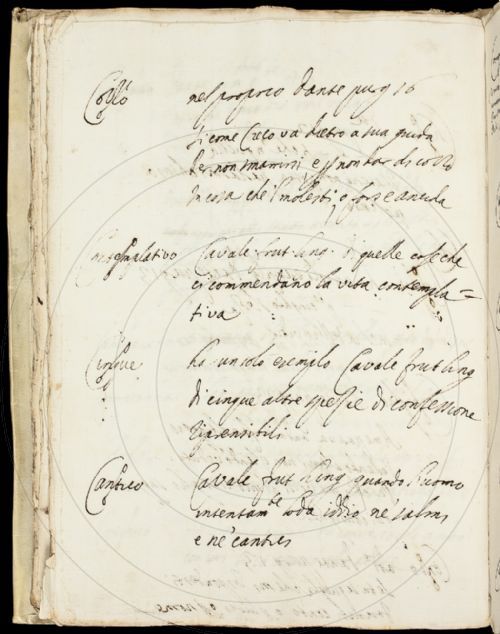 Cozzo nel proprio Dante purg 16
si come Cieco va dietro a sua guida
Per non smarrirsi e p non dar di cozzo
In cosa che 'l molesti, o forse ancida
Contemplativo Cavalc. frut. ling. di quelle cose che
ci commendano la vita contempla=
tiva
Cinque ha un solo esemplo Cavalc frut ling
di cinque altre spezie di confessione
riprensibili
Cantico Cavalc frut ling quando l'uomo
intentam.te loda iddio ne' salmi
e ne' cantici